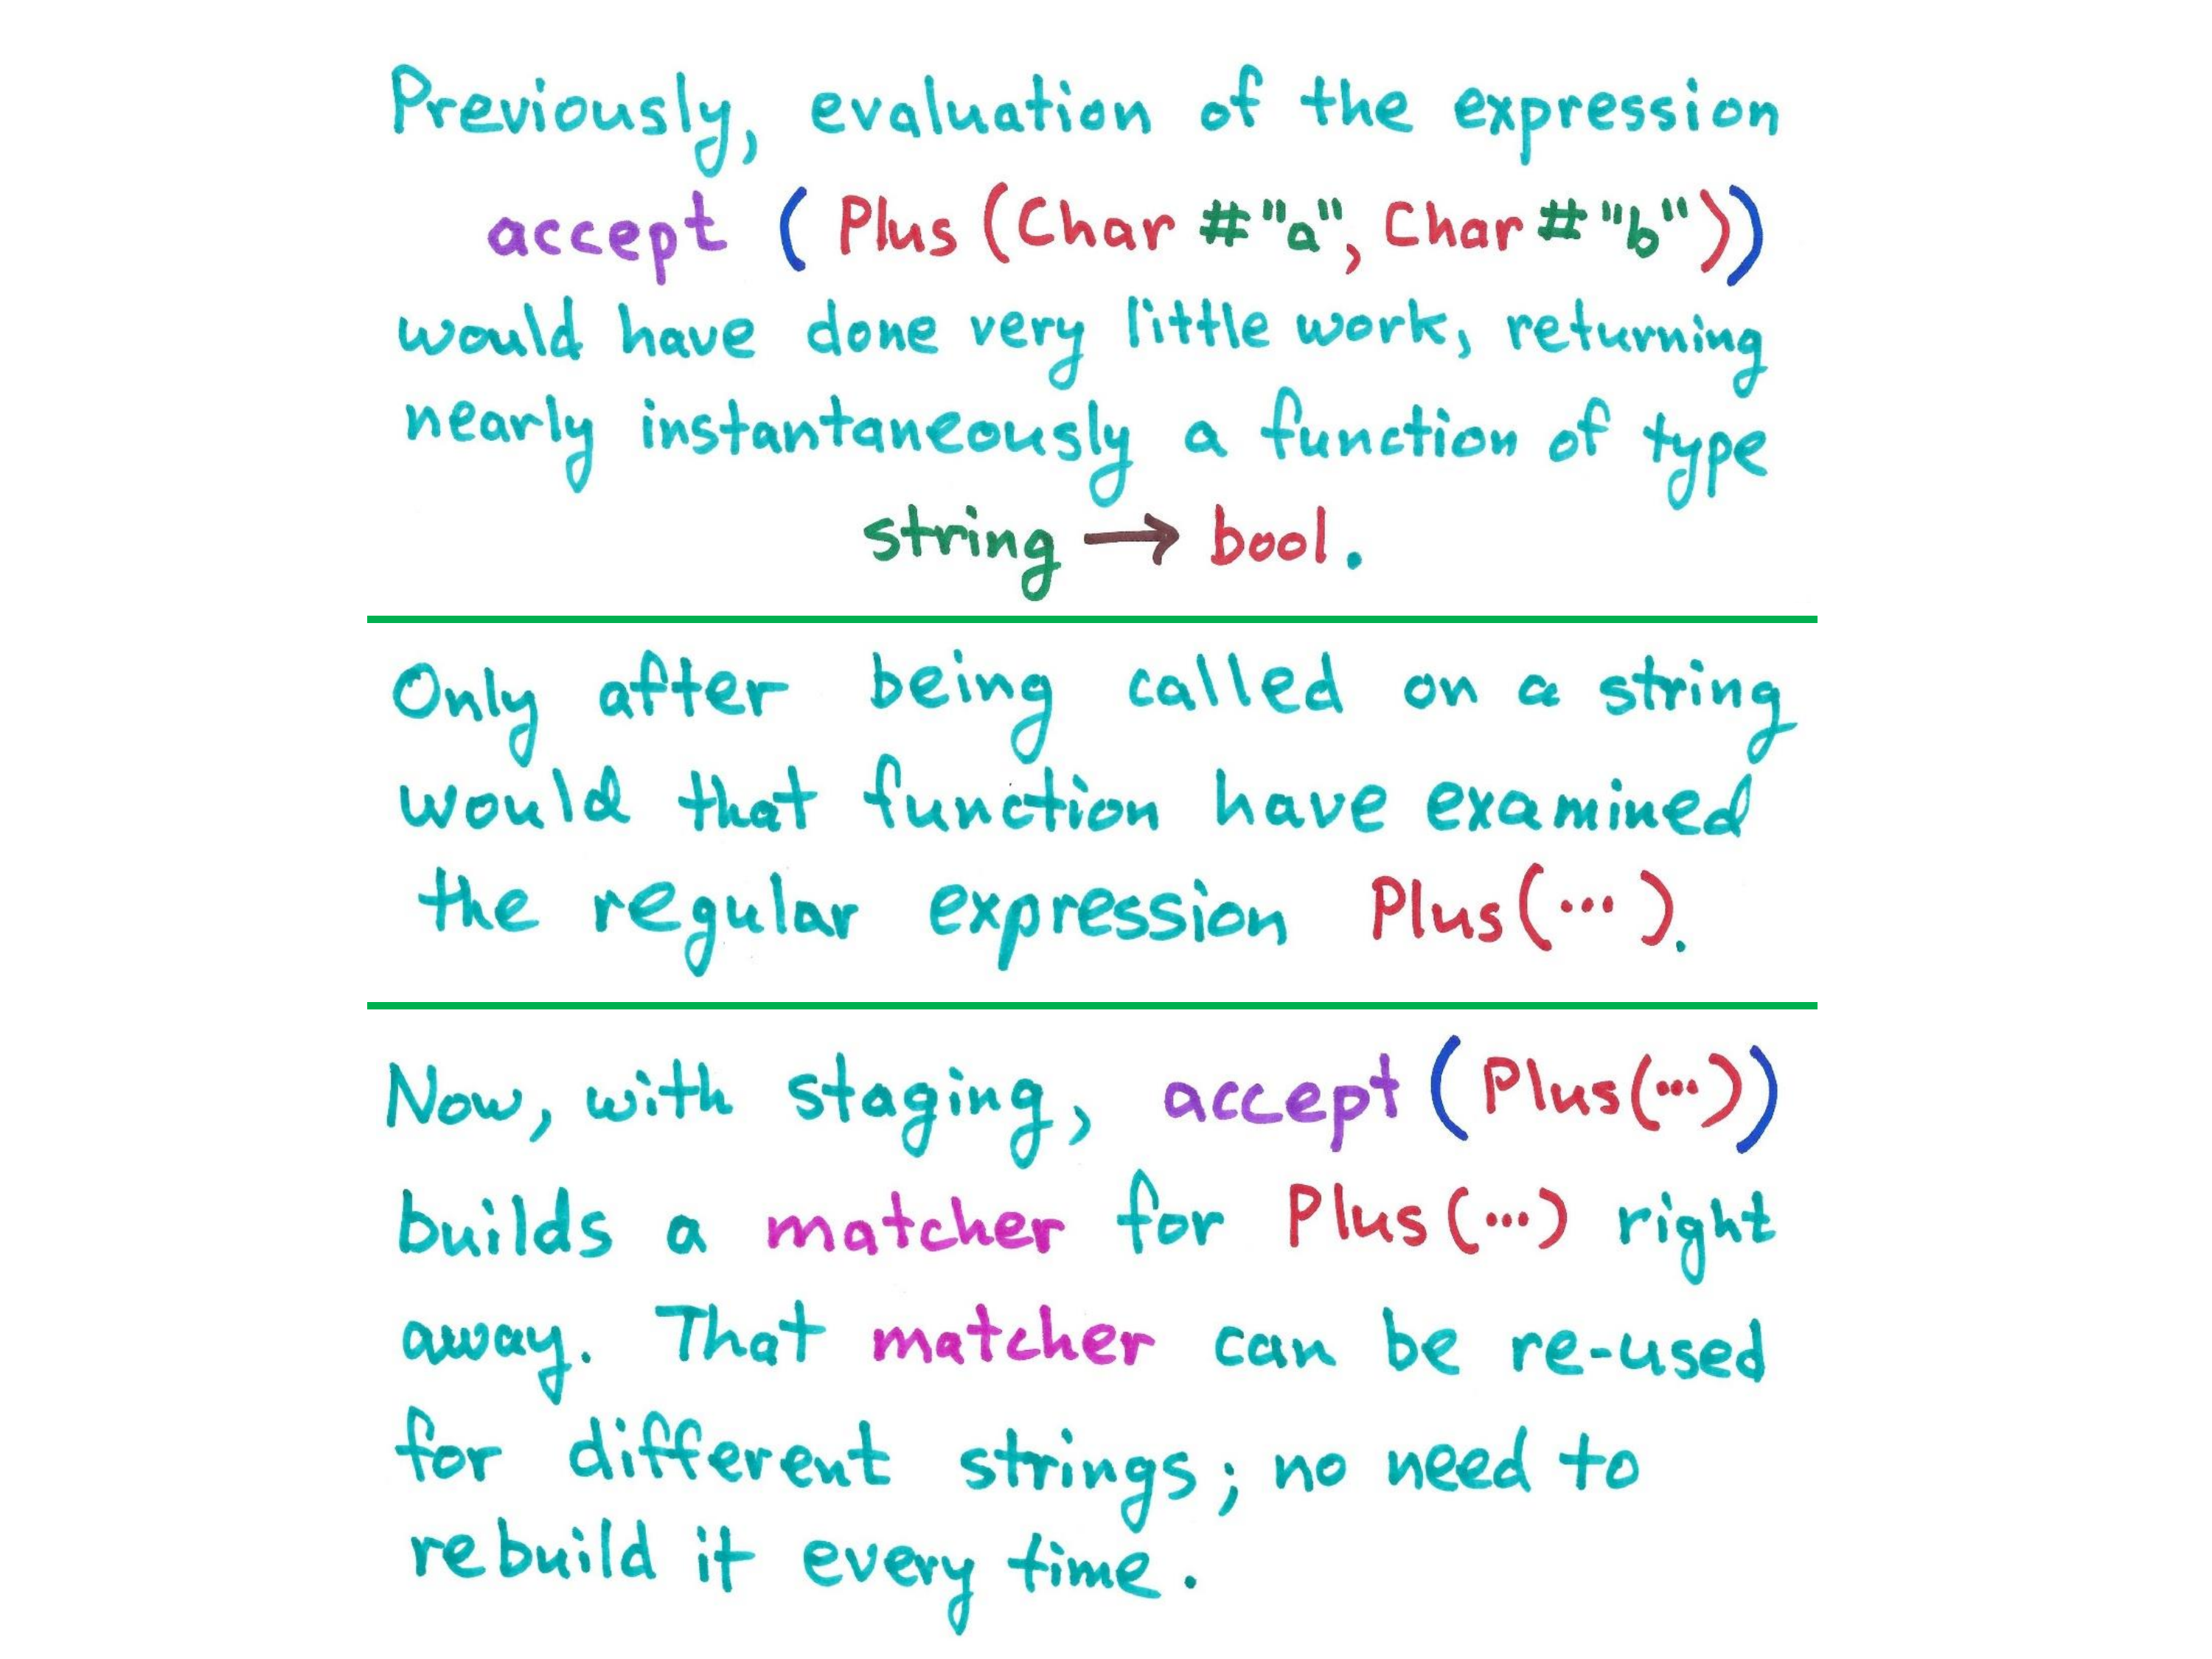 Previously, evaluation of the expression
accept (Plus (Char #"a", Char #"b"))
would have done very little work, returning
nearly instantaneously a function of type
string → bool.
Only after being called on a string
would that function have examined
the regular expression Plus(···).
Now, with staging, accept (Plus(···))
builds a matcher for Plus(···) right
away. That matcher can be re-used
for different strings; no need to
rebuild it every time.